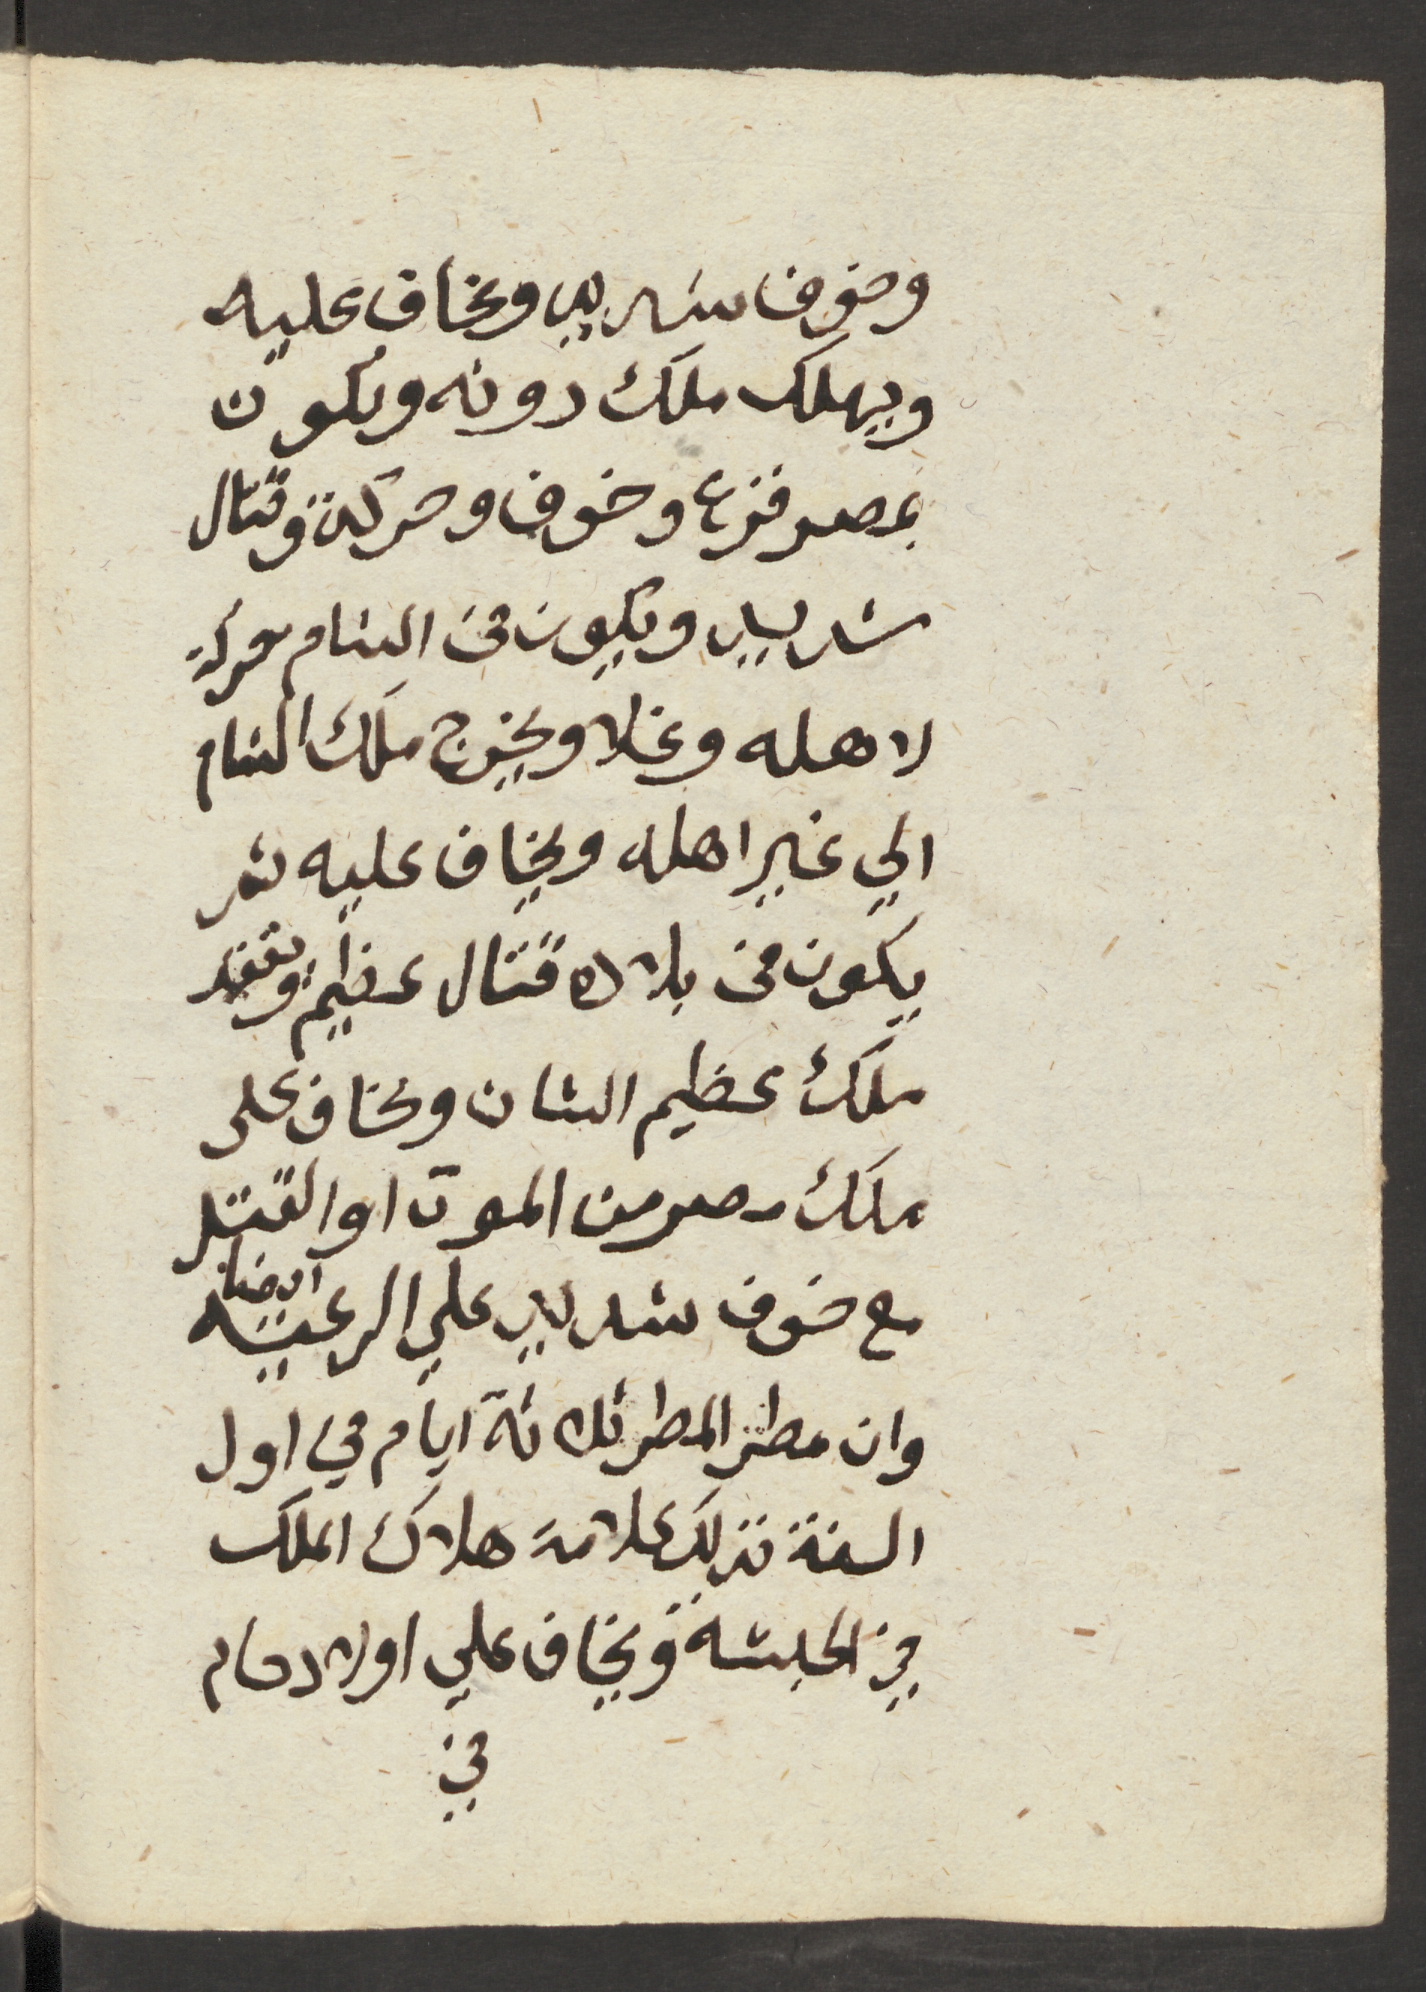 وخوف شديد ويخاف عليه
ويهلك ملك دونه ويكون
بمصر فزع وخوف وحركة وقتال
شديد ويكون في الشام حركة
لاهله وغلا ويخرج ملك الشام
الي غير اهله ويخاف عليه ثم
يكون في بلاده قتال عظيم ويفقد
ملك عظيم الشان ويخاف على
ملك مصر من الموت او القتل
مع خوف شديد علي الرعيه ايضا
وان مطر المطر ثلاثة ايام في اول
السنة فذلك علامة هلاك الملك
في الحبشه ويخاف علي اولاد حام
في